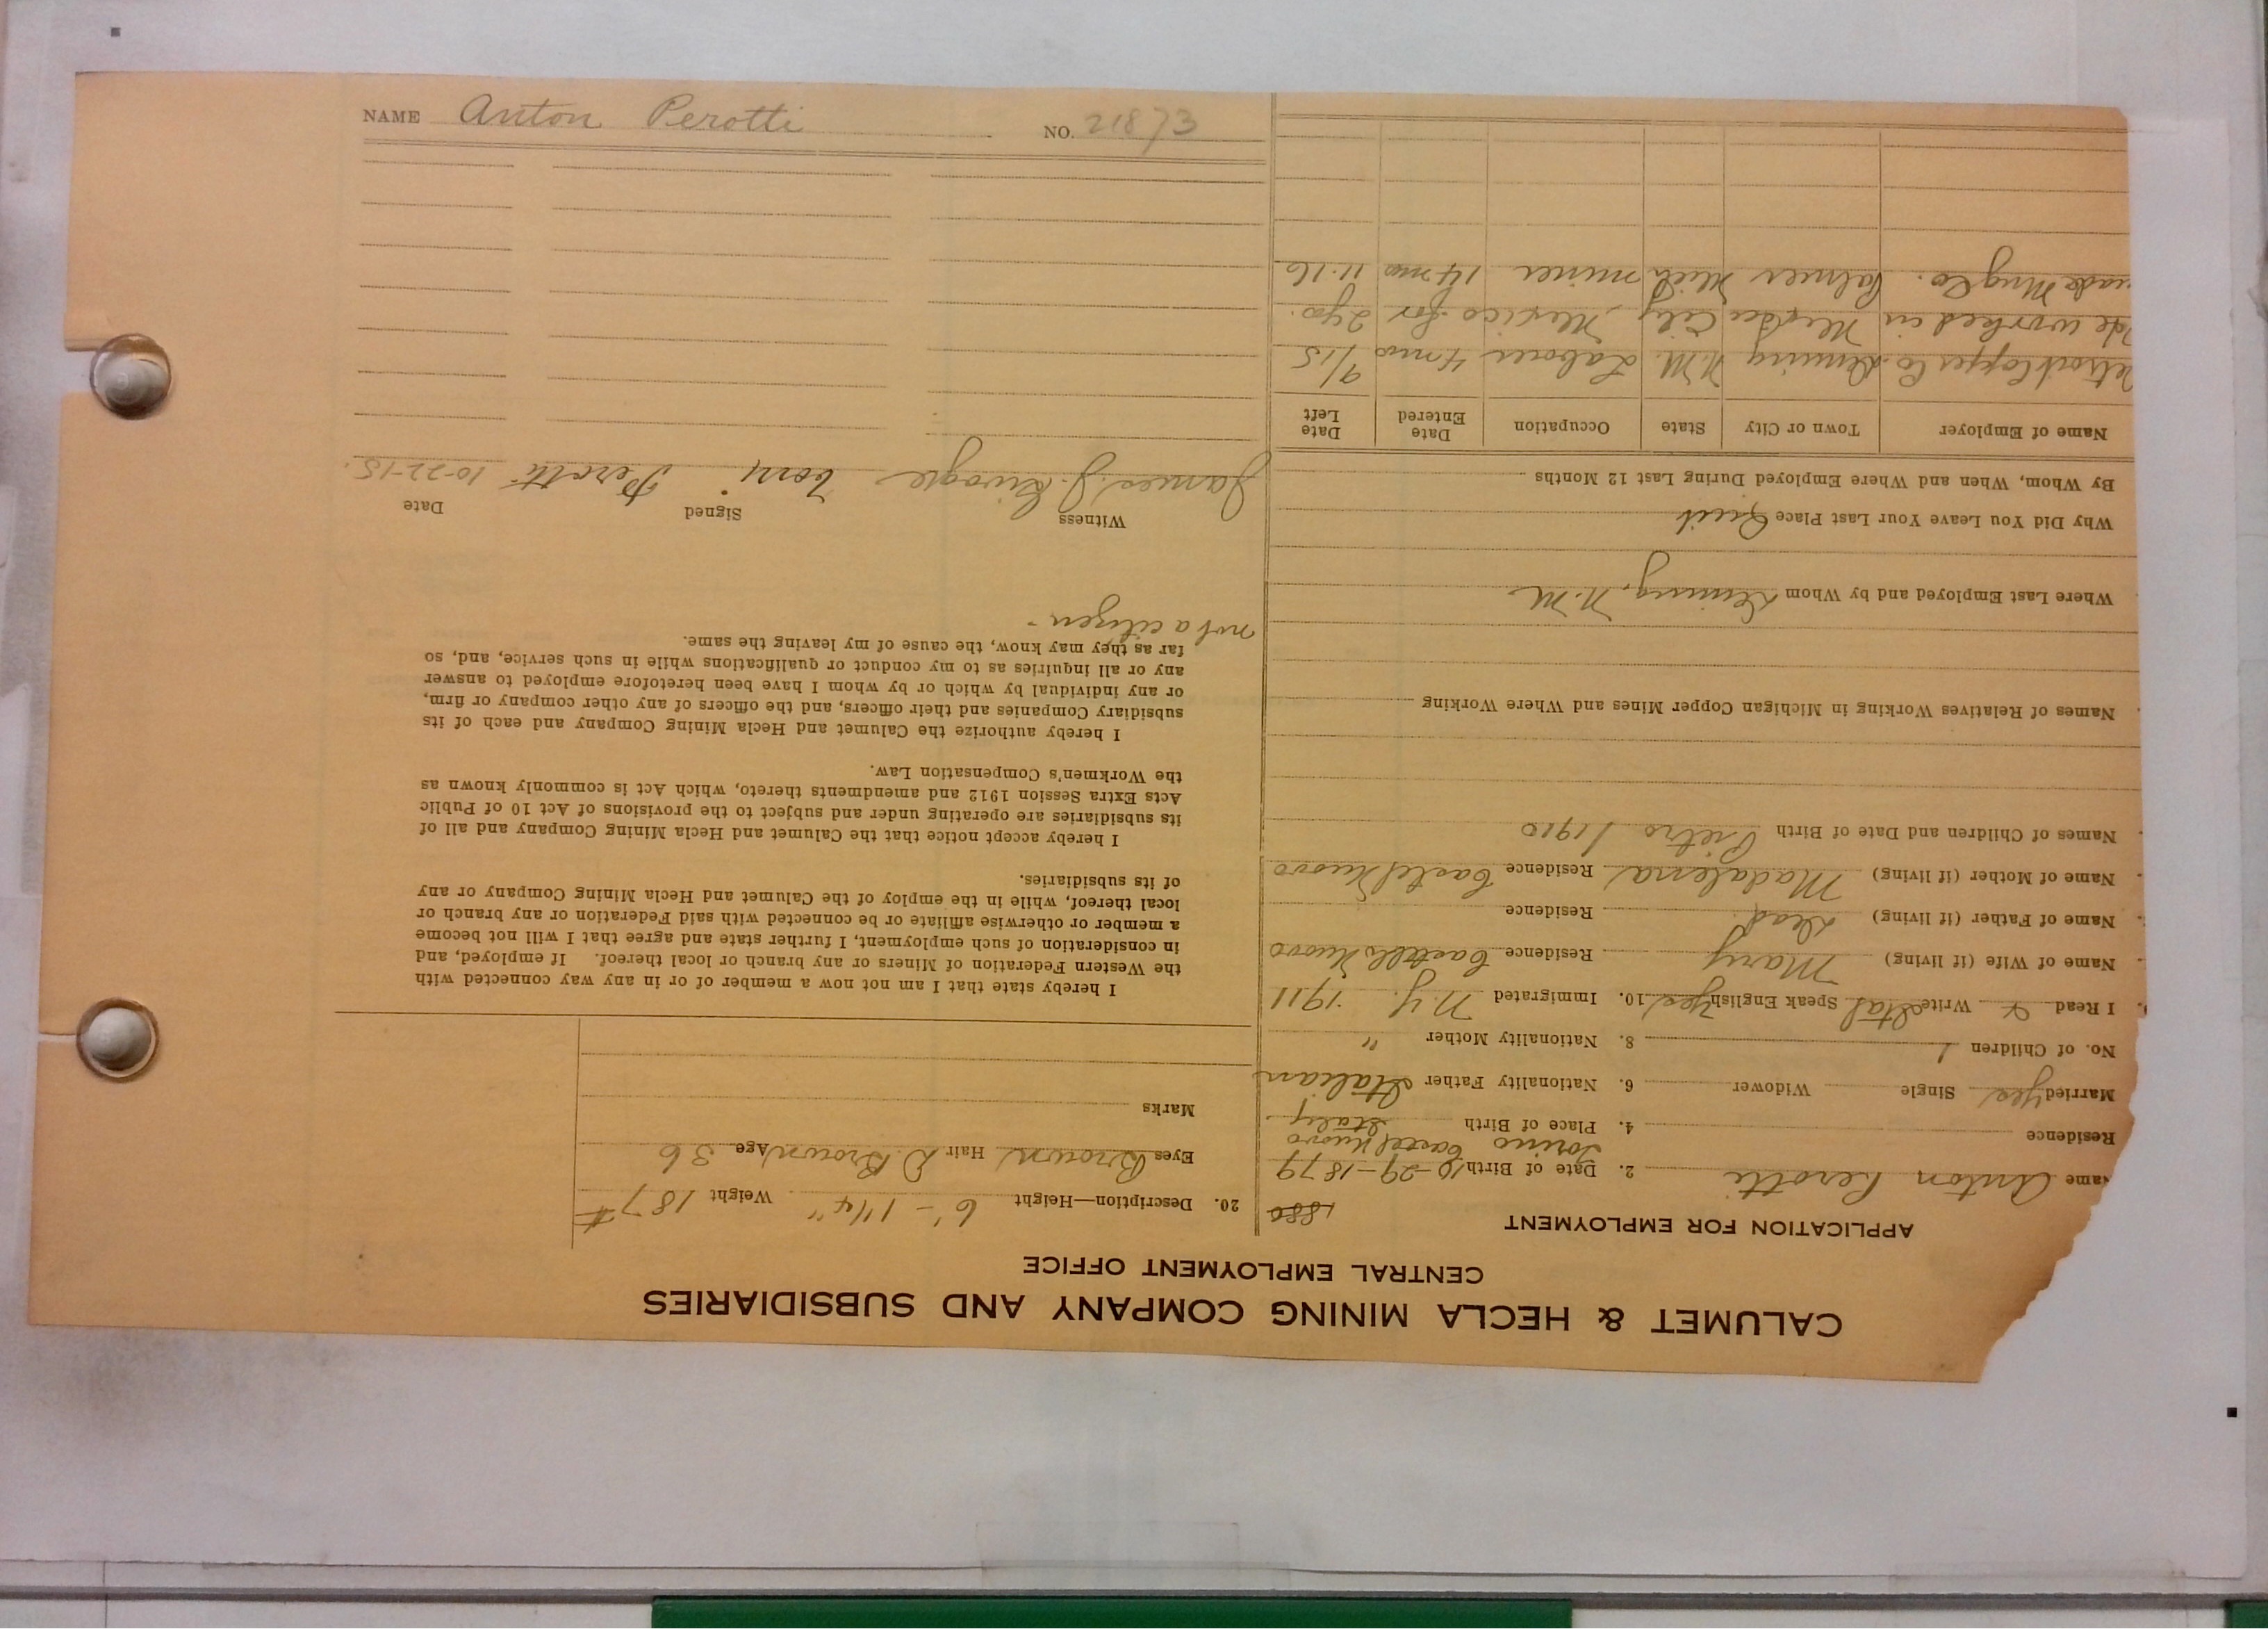 CALUMET & HECLA MINING COMPANY AND SUBSIDIARIES
CENTRAL EMPLOYMENT OFFICE
APPLICATION FOR EMPLOYMENT
1880
Name Anton Perotti 2. Date of Birth 10-29-1879
Torino Castel Nuovo
Residence 4. Place of Birth Italy
Married Yes Single Widower 6. Nationality Father Italian
No. of Children 1 8. Nationality Mother "
I Read & Write Ital Speak English Yes 10. Immigrated N.Y. 1911
Name of Wife (if living) Mary Residence Castel Nuovo
Name of Father (if living) Dead Residence
Name of Mother (if living) Madalena Residence Castel Nuovo
Names of Children and Date of Birth Pietro 1910
Names of Relatives Working in Michigan Copper Mines and Where Working
Where Last Employed and by Whom Deming, N.M.
Why Did You Leave Your Last Place Quit
By Whom, When and Where Employed During Last 12 Months
Name of Employer Town or City State Occupation Date Entered Date Left
Copper Co. Deming N.M. Laborer 4 mos 9/15
worked in Mexico City Mexico for 2 yrs.
Mng Co. Palmer Mich miner 14 mos 11-16
20. Description—Height 6'-1 1/4" Weight 187 #
Eyes Brown Hair D. Brown Age 36
Marks
I hereby state that I am not now a member of or in any way connected with
the Western Federation of Miners or any branch or local thereof. If employed, and
in consideration of such employment, I further state and agree that I will not become
a member or otherwise affiliate or be connected with said Federation or any branch or
local thereof, while in the employ of the Calumet and Hecla Mining Company or any
of its subsidiaries.
I hereby accept notice that the Calumet and Hecla Mining Company and all of
its subsidiaries are operating under and subject to the provisions of Act 10 of Public
Acts Extra Session 1912 and amendments thereto, which Act is commonly known as
the Workmen's Compensation Law.
I hereby authorize the Calumet and Hecla Mining Company and each of its
subsidiary Companies and their officers, and the officers of any other company or firm,
or any individual by which or by whom I have been heretofore employed to answer
any or all inquiries as to my conduct or qualifications while in such service, and, so
far as they may know, the cause of my leaving the same.
not a citizen -
Witness Signed Date
James J. Tony Perotti 10-22-15.
NAME Anton Perotti NO. 21873